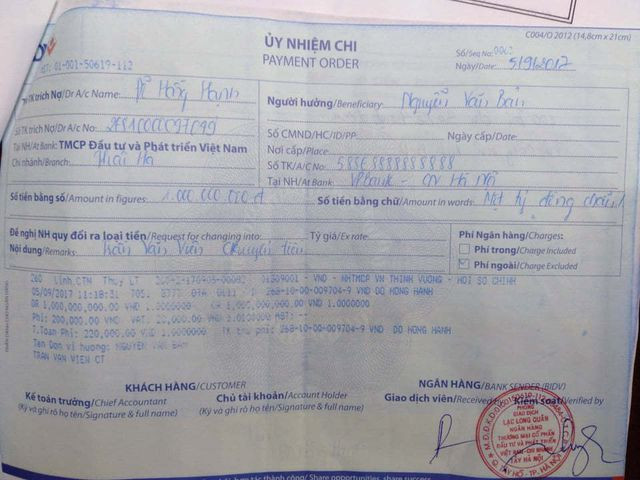 C004/D 2012 (14,8cm x 21cm)
ỦY NHIỆM CHI
PAYMENT ORDER
01-001-50619-112
Số/Seq No:
Ngày/Date: 5/9/2017
TK trích Nợ/Dr A/c Name: Hồng Hạnh
Số TK trích Nợ/Dr A/c No:
Tại NH/At Bank: TMCP Đầu tư và Phát triển Việt Nam
Chi nhánh/Branch: Thái Hà
Người hưởng/Beneficiary: Nguyễn Văn Bản
Số CMND/HC/ID/PP: Ngày cấp/Date:
Nơi cấp/Place
Số TK/A/C No:
Tại NH/At Bank: VPBank - CN Hà Nội
Số tiền bằng số/Amount in figures: 1.000.000.000đ
Số tiền bằng chữ/Amount in words: Một tỷ đồng chẵn
Đề nghị NH quy đổi ra loại tiền/Request for changing into: Tỷ giá/Ex rate:
Nội dung/Remarks: Trần Văn Viên Chuyển tiền
Phí Ngân hàng/Charges:
Phí trong/Charge Included
Phí ngoài/Charge Excluded
260 Linh.CTM Thuy LT - VND - NHTMCP VN THINH VUONG - HOI SO CHINH
05/09/2017 11:18:31 705. 8777 268-10-00-009704-9 VND DO HONG HANH
DR 1,000,000,000.00 VND 1,000,000,000.00 VND 1.0000000
Phi: 200,000.00 VND VAT: 20,000.00 VND
T.Toan Phi: 220,000.00 VND 1.0000000 TK thu phi: 268-10-00-009704-9 VND DO HONG HANH
Ten Don vi huong: NGUYEN VAN BAN
TRAN VAN VIEN CT
KHÁCH HÀNG/CUSTOMER
Kế toán trưởng/Chief Accountant
(Ký và ghi rõ họ tên/Signature & full name)
Chủ tài khoản/Account Holder
(Ký và ghi rõ họ tên/Signature & full name)
NGÂN HÀNG/BANK SENDER (BIDV)
Giao dịch viên/Received by Kiểm soát/Verified by
PHÒNG
GIAO DỊCH
LẠC LONG QUÂN
NGÂN HÀNG
THƯƠNG MẠI CỔ PHẦN
ĐẦU TƯ VÀ PHÁT TRIỂN
VIỆT NAM - CHI NHÁNH
TÂY HÀ NỘI
Q. TÂY HỒ - TP. HÀ NỘI
hợp thành công/ Share opportunities, share success